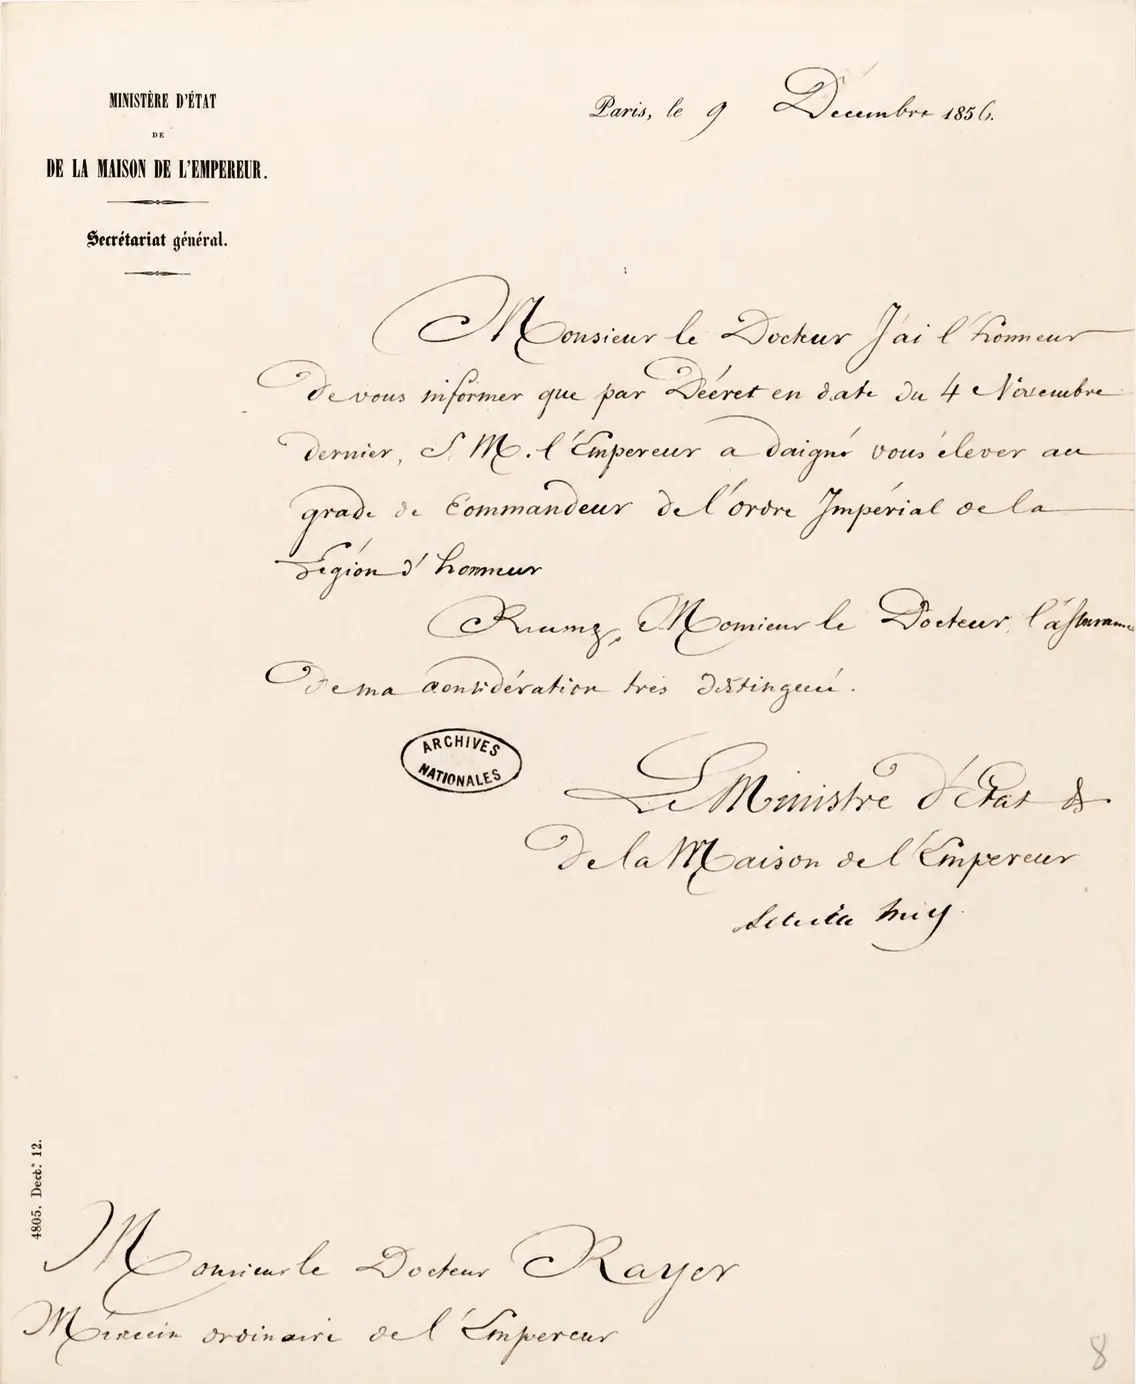 MINISTÈRE D'ÉTAT
DE
DE LA MAISON DE L'EMPEREUR.
Secrétariat général.
Paris, le 9 Décembre 1856.
Monsieur le Docteur J'ai l'honneur
de vous informer que par Décret en date du 4 Novembre
dernier, S. M. l'Empereur a daigné vous élever au
grade de Commandeur de l'ordre Impérial de la
Légion d'honneur
Monsieur le Docteur, l'assurance
de ma considération très distinguée.
ARCHIVES
NATIONALES
Le Ministre d'Etat &
de la Maison de l'Empereur
4805. Decb. 12.
Monsieur le Docteur Rayer
Médecin ordinaire de l'Empereur
8